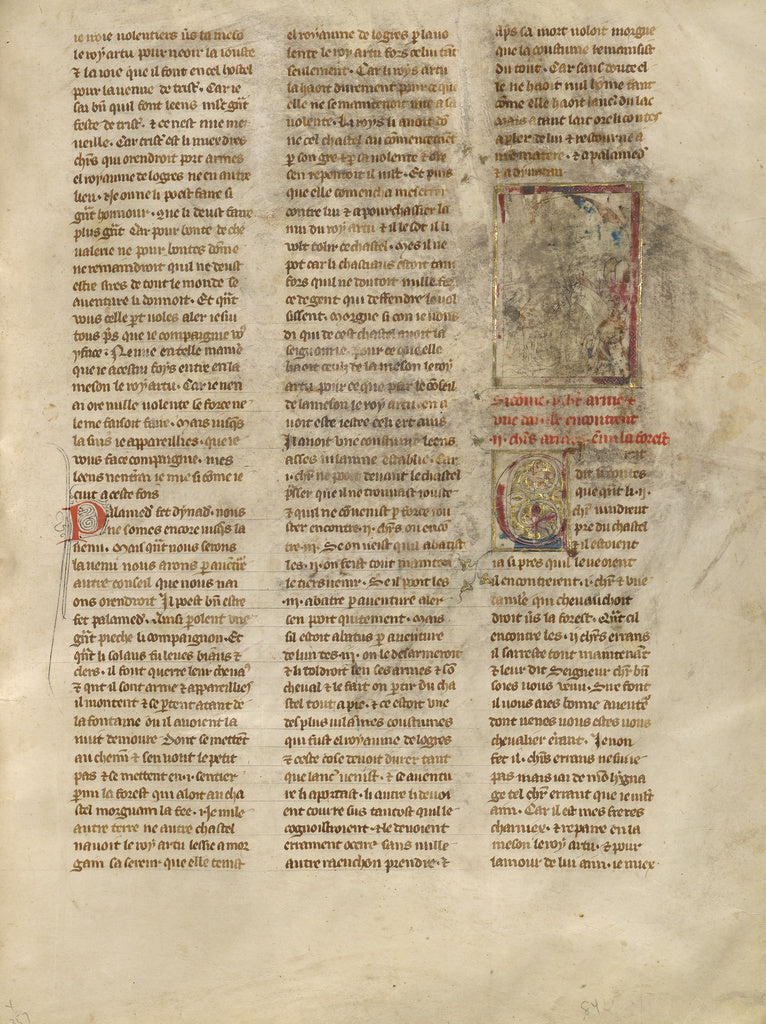 ie iroie volentiers us la meso
le roy artu pour veoir la iouste
& la ioie que il font en cel hostel
pour la venue de trist. Car ie
sai bn quil font leens mlt gnt
feste de trist. & ce nest mie mer
veille. Car trist est li mieudres
chrs qui orendroit port armes
el royaume de logres ne en autre
lieu. & ie on ne li poest faire si
gnt honnour. que li deust faire
plus gnt. Car pour bonte de che
valerie ne pour bontes dome
ne remandroit quil ne deust
estre sires de tout le monde se
aventure li donnoit. Et qnt
vous celle pt voles aler ie sui
tous ps que ie compaignie vo
face. Ne mie en telle manie
que ie a cestui foys entre en la
meson le roy artu. Car ie nen
ai ore mille volente se force ne
le me faisoit faire. mais iusqs
la sui ie appareillies. que ie
vous face compaignie. mes
leens nentrai ie mie si come ie
cuit a ceste fois
Palamed fet dynad. nous
ne somes encore iusqs la
venu. Mais qnt nous serons
la venu nous arons p auentur
autre conseil que nous nai
ons orendroit Il poest bn estre
fet palamed. Ainsi polent une
gnt pieche li compaignon. Et
qnt li solaus fu leves biaus &
clers. il font querre leur chevax
& qnt il sont arme & appareillies
il montent & se ptent atant de
la fontaine ou il avoient la
nuit demoure Dont se mettent
au chemin & sen vont le petit
pas & se mettent en .i. sentier
parmi la forest qui aloit au cha
stel morguain la fee. Ne mile
autre terre ne autre chastel
navoit le roy artu lessie a mor
gain sa sereur que elle tenist
el royaume de logres par la vo
lente le roy artu fors celui tant
seulement. Car li roys artu
la haoit durement pour ce que
elle ne se maintenoit mie a sa
volente. Li roys li avoit do
ne cel chastel au comencement
p son gre & p sa volente & dre
sen repentoit il mlt. Et puis
que elle comencha meserrer
contre lui & a pourchassier la
mu du roy artu & il le sot il li
volt tolir ce chastel. Mes il ne
pot car li chastiaus estoit tant
fors quil ne doutoit mille force
ce de gent qui deffendre le vol
sissent. morgue si com ie vous
di qui de cest chastel avoit la
seignorie. pour ce que elle
haoit ceux de la meson le roy
artu pour ce que par le coseil
de la meson le roy artu. en a
voit este ietee celi ert avis
Il avoit une coustume leens
asses vilainne establie. Car
.i. chr ne poit devant le chastel
passer que il ne trouvast iouste
& quil ne convenist p force iou
ster encontre .ii. chrs ou enco
tre .iii. Se on veist quil abatist
les .ii. on fesit tout maintenant
le tiers venir. Se il poit les
.iii. abatre p aventure aler
sen poit quitement. Mais
sil estoit abatus p aventure
de lun des .iii. on le desarmeroit
& li toldroit sen ses armes & so
cheval & le fait on ptir du cha
stel tout a pie. & ce estoit une
des plus vilaines coustumes
qui fust el royaume de logres
& ceste cose devoit durer tant
que lanc. venist. & se aventu
re li aportast. li autre li devoi
ent courre sus tantost quil le
cognoistroient. & le devoient
erraument occire sans nulle
autre raenchon prendre. &
aps sa mort voloit morgue
que la coustume remansist
du tout. Car sans doute el
le ne haoit nul home tant
come elle haoit lanc. du lac
Mais a tant lait ore li contes
a pler de lui & retourne a
ma matere. & a palamed
& a dynadan
Si come
une dam le encontrent
.ii. chrs arm en la forest
dit li contes
que qnt li .ii.
chr vindrent
pre du chastel
& il estoient
ia si pres quil le veoient
il encontrerent .i. chr & une
damle qui chevauchoit
droit us la forest. Qnt cil
encontre les .ii. chrs errans
il sarreste tout maintenant
& leur dit Seigneur chr bn
soies vous venu. Sire font
il vous aies bonne aventure
dont venes vous estes vous
chevalier errant. Ie non
fet il. chrs errans ne sui ie
pas mais iai de mo lygna
ge tel chr errant que ie mlt
aim. Car il est mes freres
charnex. & repaire en la
meson le roy artu. & pour
lamour de lui aim ie miex
84